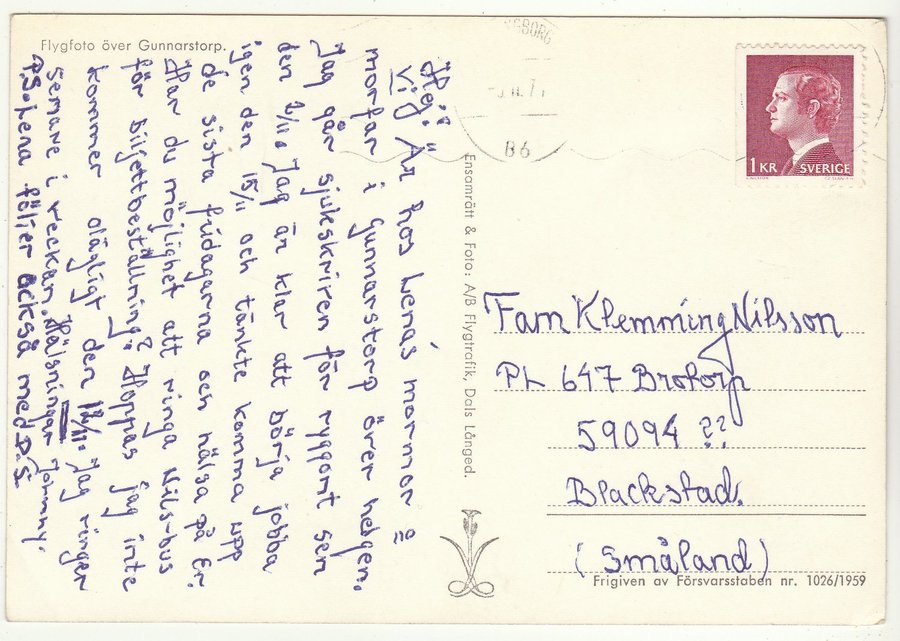 Flygfoto över Gunnarstorp.
Hej!
Vi Är hos Lenas mormor o
morfar i Gunnarstorp över helgen.
Jag går sjukskriven för ryggont sen
den 2/11 Jag är klar att börja jobba
igen den 15/11 och tänkte komma upp
de sista fridagarna och hälsa på Er.
Har du möjlighet att ringa Nils-bus
för biljettbeställning? Hoppas jag inte
kommer olägligt den 12/11. Jag ringer
semare i veckan. Hälsningar Jommy.
P.S. Lena följer också med P.S
Ensamrätt & Foto: A/B Flygtrafik, Dals Långed.
B6
1 KR SVERIGE
Fam Klemming Nilsson
PL 647 Brotorp
59094 ??
Blackstad.
(Småland)
Frigiven av Försvarsstaben nr. 1026/1959